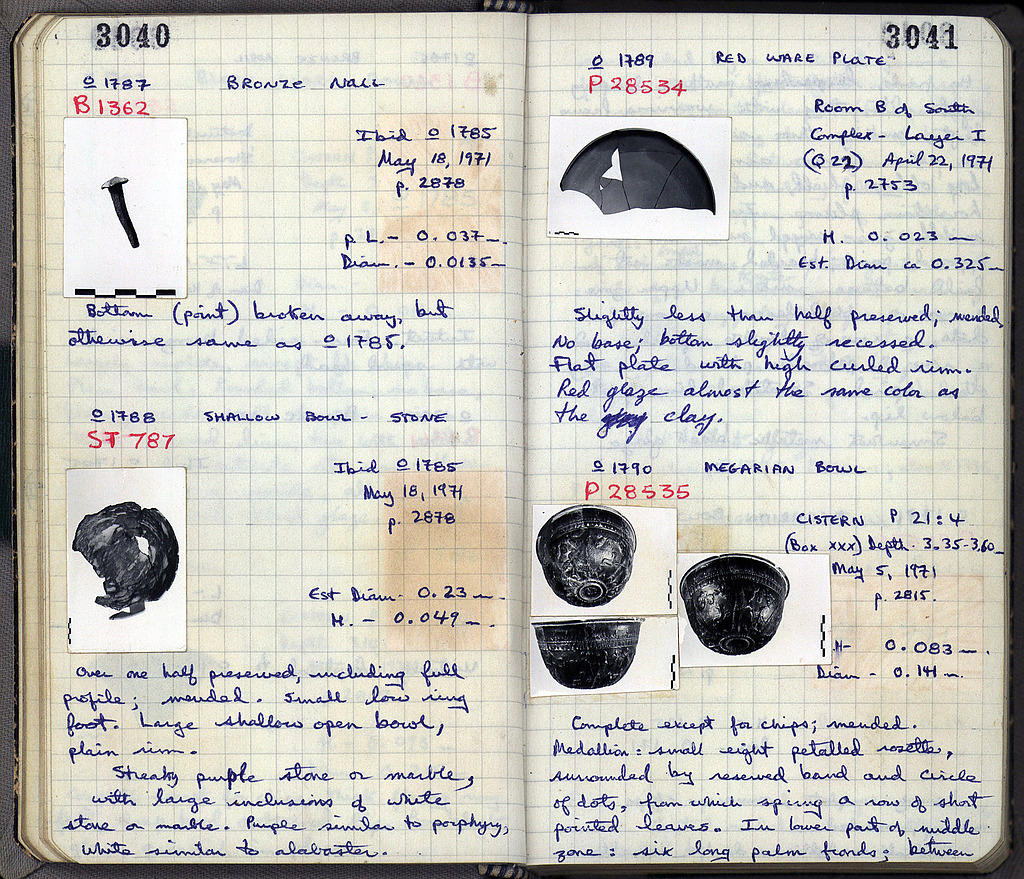 3040
o 1787 BRONZE NAIL
B 1362
Ibid o 1785
May 18, 1971
p. 2878
p L. - 0.037 m.
Diam. - 0.0135 m
Bottom (point) broken away, but
otherwise same as o 1785.
o 1788 SHALLOW BOWL - STONE
ST 787
Ibid o 1785
May 18, 1971
p. 2878
Est Diam - 0.23 m.
H. - 0.049 m.
Over one half preserved, including full
profile; mended. Small low ring
foot. Large shallow open bowl,
plain rim.
Streaky purple stone or marble,
with large inclusions of white
stone or marble. Purple similar to porphyry,
white similar to alabaster.
3041
o 1789 RED WARE PLATE
P 28534
Room B of South
Complex - Layer I
(Q 22) April 22, 1971
p. 2753
H. 0.023 m
Est. Diam ca 0.325 m
Slightly less than half preserved; mended.
No base; bottom slightly recessed.
Flat plate with high curled rim.
Red glaze almost the same color as
the clay.
o 1790 MEGARIAN BOWL
P 28535
CISTERN P 21:4
(Box XXX) Depth - 3.35-3.60 m
May 5, 1971
p. 2815.
H- 0.083 m.
Diam - 0.141 m.
Complete except for chips; mended.
Medallion: small eight petalled rosette,
surrounded by reserved band and circle
of dots, from which spring a row of short
pointed leaves. In lower part of middle
zone: six long palm fronds; between